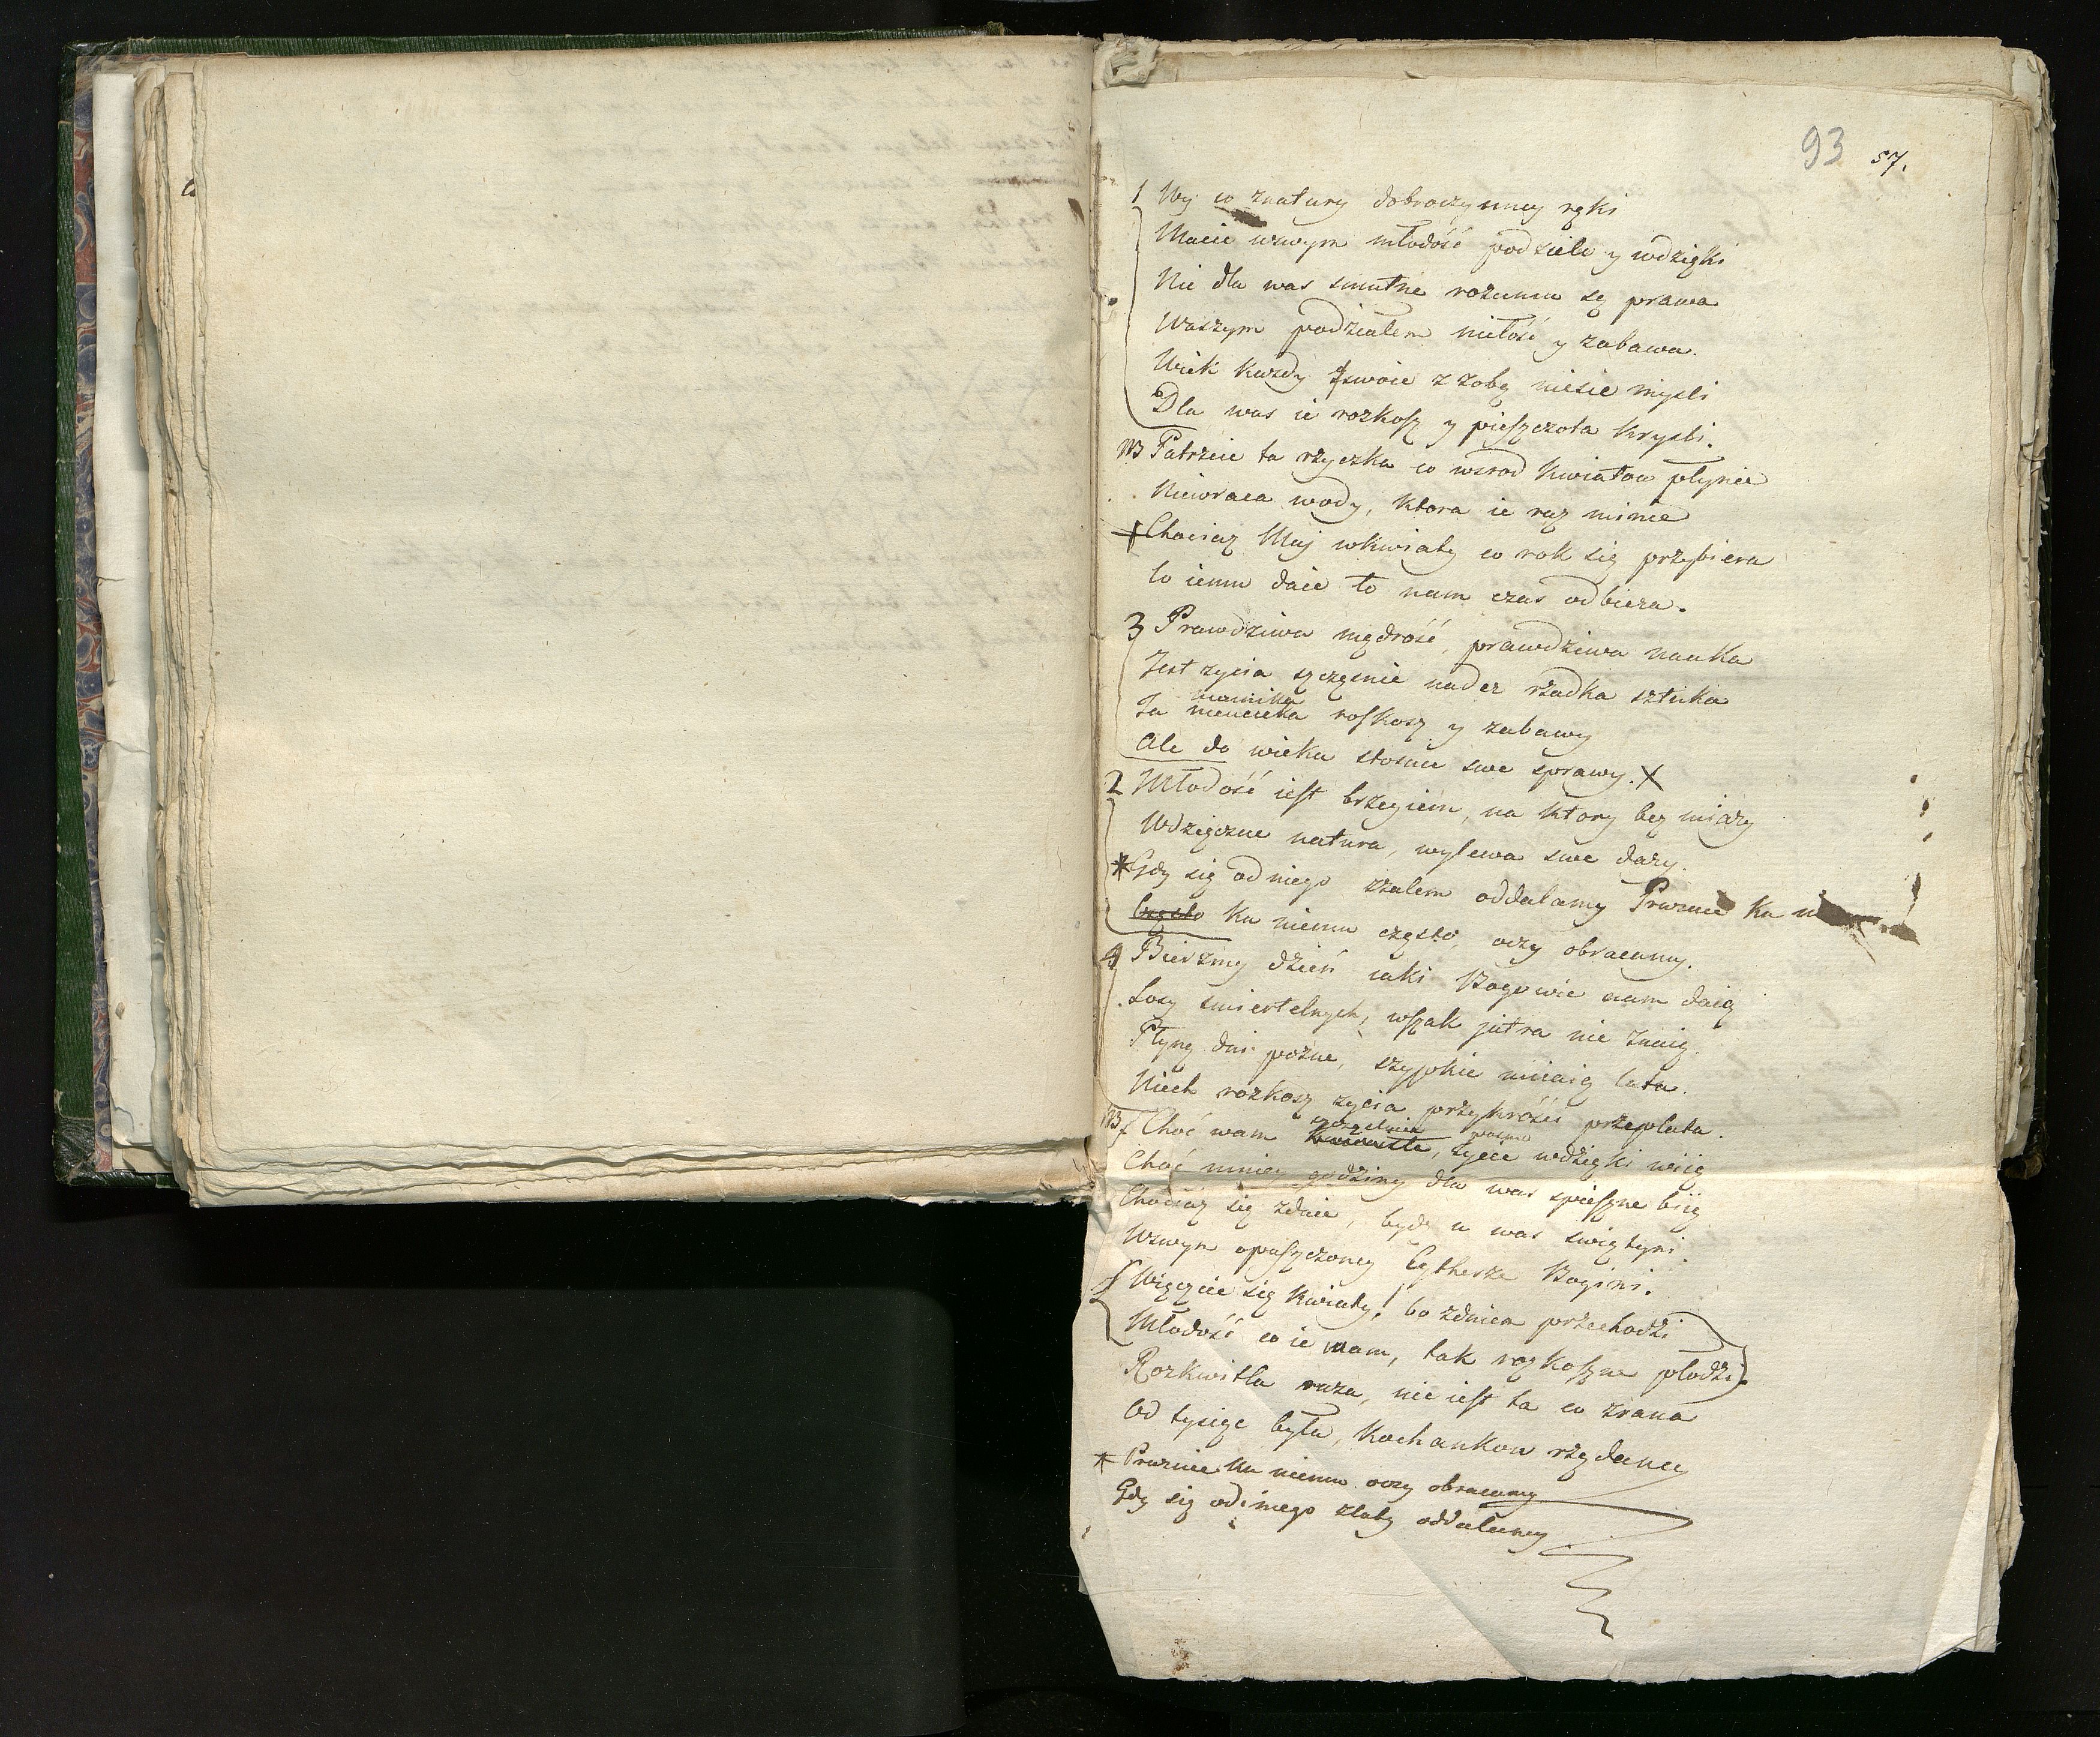 93 57.
1 Wy co znatury dobroczynney ręki
Macie wswym młodość podziele y wdzięki
Nie dla was smutne rozumu są prawa
Waszym podziałem miłość y zabawa.
Wiek każdy swoie z sobą niesie mysli
Dla was ie rozkosz y pieszczota kryśli.
Patrzcie ta rzyczka co wsrod kwiatow płynie
Niewraca wody, ktora ie raz minie
Chociaz Maj wkwiaty co rok się przybiera
Co iemu daie to nam czas odbiera.
3 Prawdziwa mądrość, prawdziwa nauka
Jest zycia szczęsnie nader rzadka sztuka
Ta nieucieka roskosz y zabawy
Ale do wieku stosuie swe sprawy. X
2 Młodość iest brzegiem, na ktory bez miary
Wdzięczne natura, wylewa swe dary.
* Gdy się od niego zżalem oddalamy Prożnie ku
Często ku niemu często, oczy obracamy.
4 Bierzmy dzień iaki Bogowie nam daią
Losy smiertelnych, wszak jutra nie znaią
Płyną dni pożne, szypkie miiaią lata.
Niech rozkosz zycia przykrości przeplata.
Choć wam zycie wdzięki wiią
Choć mniey godziny dla was spieszne biią
Chociaz się zdaie, bydz u was swiątyni
Wswyn opuszczoney Cytherze Bogini.
Więczcie się kwiaty, bo zdniem przechodzi
Młodość co ie wam, tak rozkoszne płodzi.
Rozkwitła roza, nie iest ta co zrana
Od tysiąc była, kochankow rządana
* Proznie ku niemu oczy obracamy
Gdy się od niego zlaty oddalamy